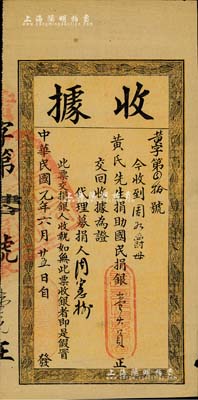 上海陽明拍賣
收據
書字第 拾號
今收到周 爵母
黃氏先生捐助國民捐銀壹大員正
交回收據為證
代理募捐人周
此票交捐銀人收執如無此票收銀者即是假冒
中華民國元年六月廿五日自 發
字第
書
號
正